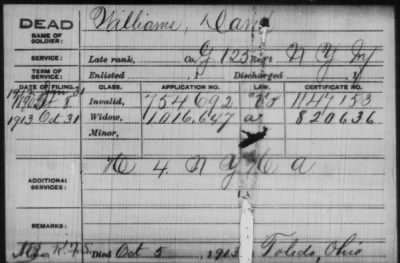 DEAD Williams, Dan
NAME OF SOLDIER:
SERVICE: Late rank, Co. G 125 Reg't N Y
TERM OF SERVICE: Enlisted Discharged
DATE OF FILING. CLASS. APPLICATION NO. LAW. CERTIFICATE NO.
8 Invalid, 754692 1147153
1913 Oct 31 Widow, 1,016,647 a 820636
Minor,
ADDITIONAL SERVICES: H 4 N Y H A
REMARKS:
Died Oct 5, 1913 Toledo, Ohio